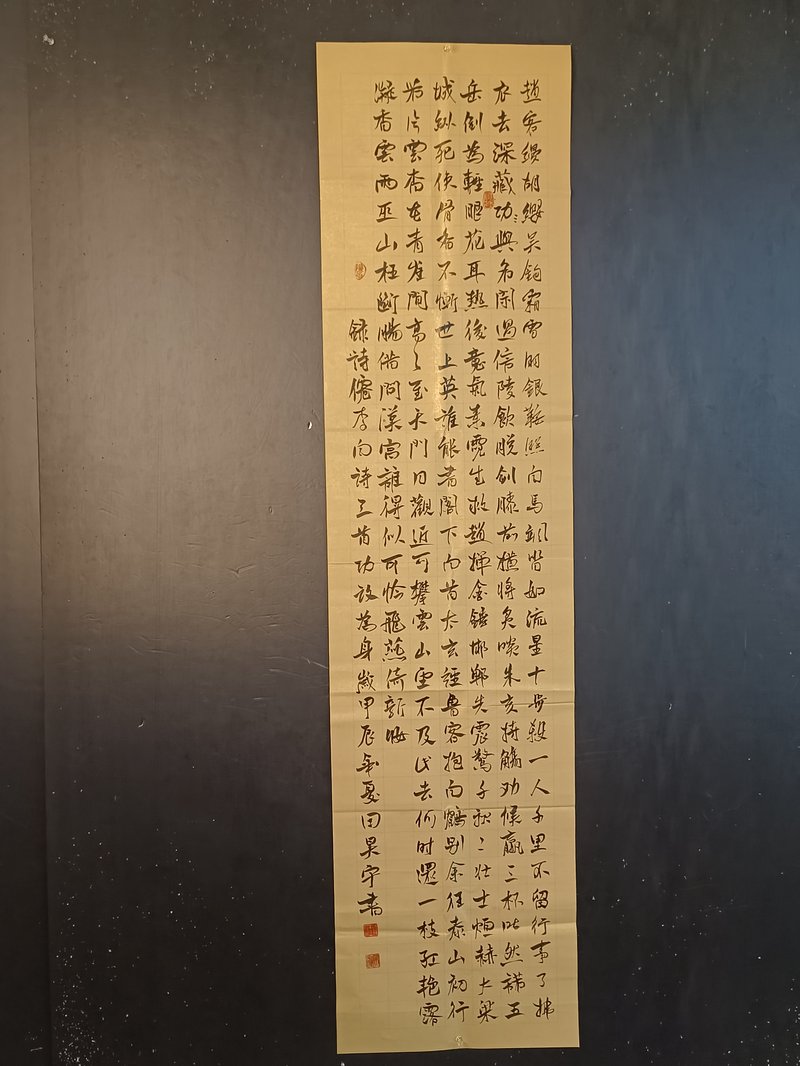 趙客縵胡纓吳鈎霜雪明銀鞍照白馬颯沓如流星十步殺一人千里不留行事了拂
衣去深藏功與名閑過信陵飲脫劍膝前橫將炙啖朱亥持觴勸侯嬴三杯吐然諾五
岳倒為輕眼花耳熱後意氣素霓生救趙揮金錘邯鄲先震驚千秋二壯士烜赫大梁
城縱死俠骨香不慚世上英誰能書閣下白首太玄經魯客抱白鶴別余往泰山初行
若片雲杳在青崖間高〻至天門日觀近可攀雲山望不及此去何時還一枝紅艷露
凝香雲雨巫山枉斷腸借問漢宮誰得似可憐飛燕倚新妝
錄詩僊李白詩三首功為身歲甲辰年夏田昊宇書